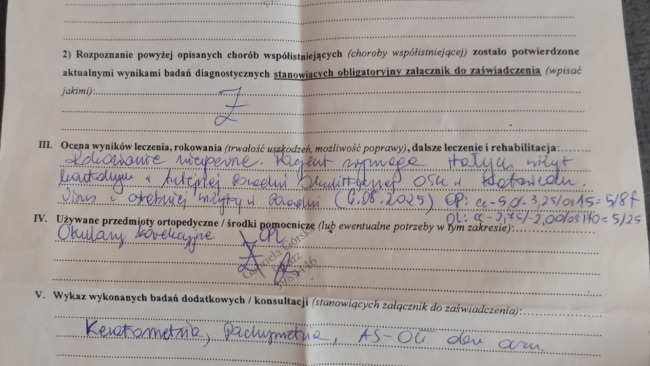 2) Rozpoznanie powyżej opisanych chorób współistniejących (choroby współistniejącej) zostało potwierdzone
aktualnymi wynikami badań diagnostycznych stanowiących obligatoryjny załącznik do zaświadczenia (wpisać
jakimi):
III. Ocena wyników leczenia, rokowania (trwałość uszkodzeń, możliwość poprawy), dalsze leczenie i rehabilitacja:
Rokowanie niepewne. Pacjent wymaga stałych wizyt
kontrolnych w tutejszej Poradni Okulistycznej OSK w Katowicach.
Visus z ostatniej wizyty w Poradni (6.08.2025) OP: cc -5,0/-3,25/ax15 = 5/8
OL: cc -2,75/-2,00/ax170 = 5/25
IV. Używane przedmioty ortopedyczne / środki pomocnicze (lub ewentualne potrzeby w tym zakresie):
Okulary korekcyjne
lekarz
V. Wykaz wykonanych badań dodatkowych / konsultacji (stanowiących załącznik do zaświadczenia):
Keratometria, Pachymetria, AS-OCT